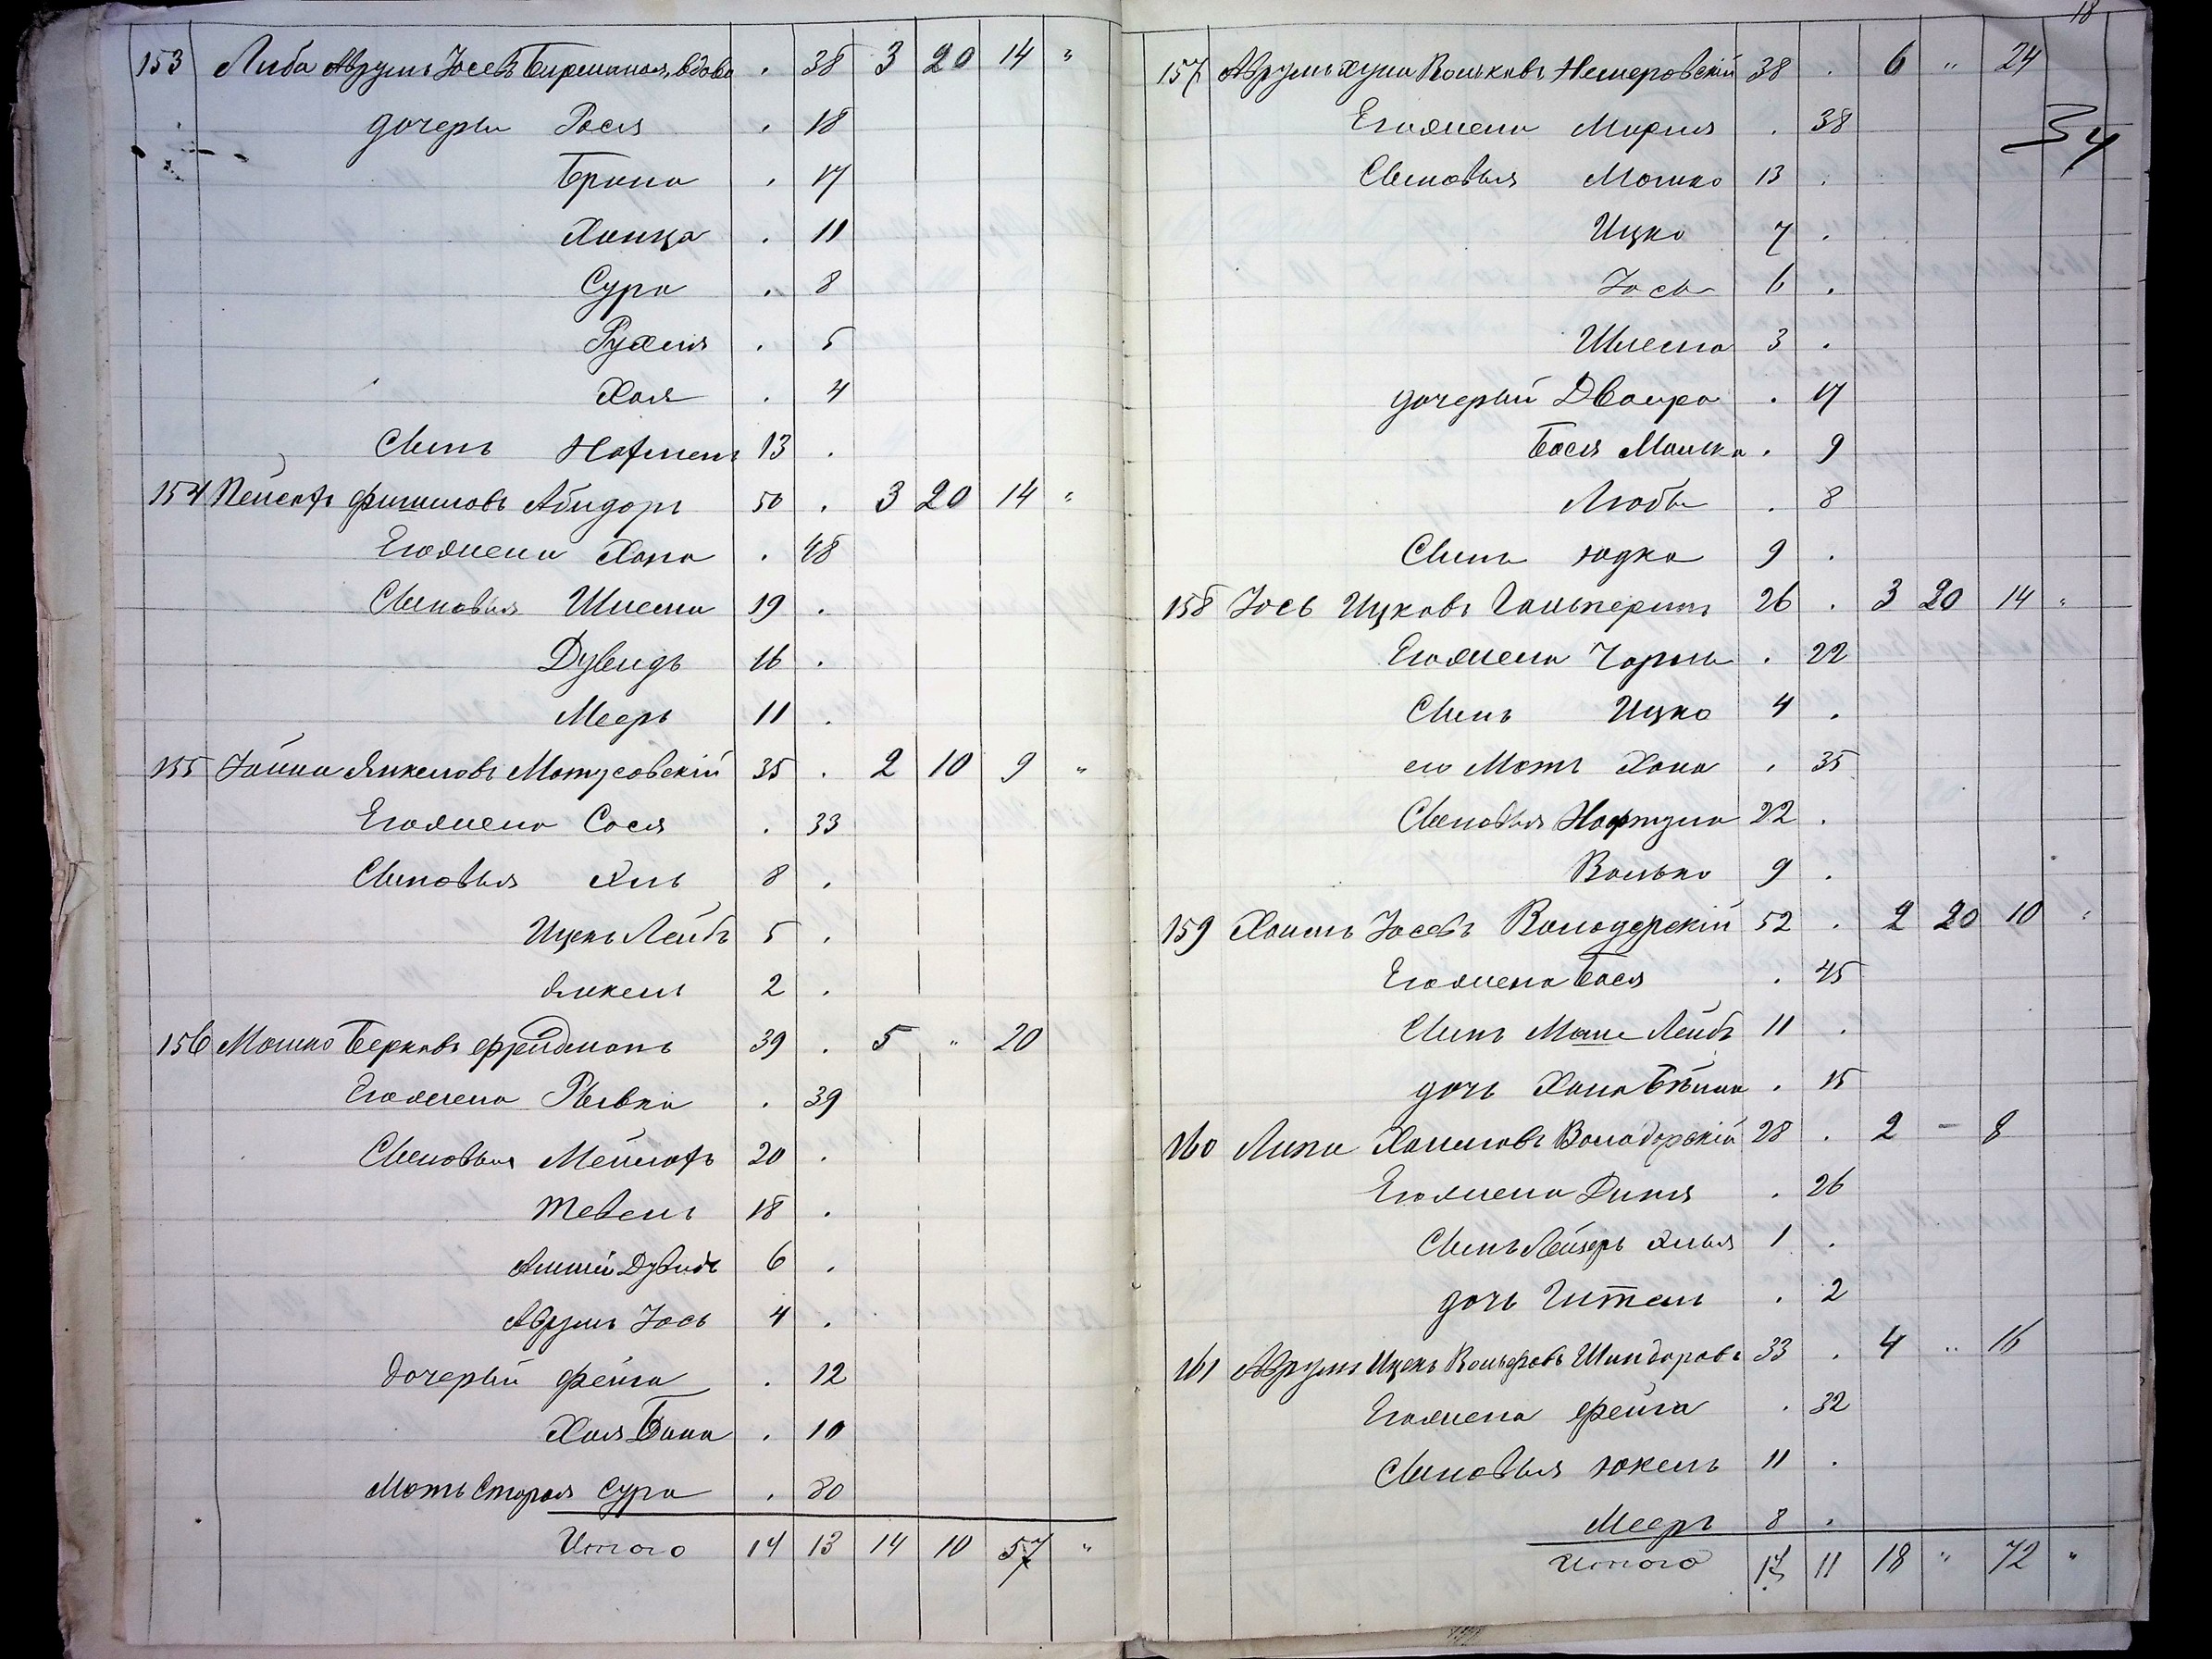 153 Либа Аврумъ Іосевъ Бирманъ, вдова . 38 3 20 14 "
дочеры Рося . 18
Брана . 17
Ханца . 11
Сура . 8
Рухля . 5
Хая . 4
Сынъ Нафтель 13 .
154 Пейсахъ Фишиловъ Абидоръ 50 . 3 20 14 "
Егожена Хана . 48
Сыновья Шлема 19 .
Дувидъ 16 .
Мееръ 11 .
155 Іойна Янкеловъ Матусовскій 35 . 2 10 9 "
Егожена Сося . 33
Сыновья Хиль 8 .
Ицекъ Лейбъ 5 .
Янкель 2 .
156 Мошко Берковъ Фрейдманъ 39 . 5 " 20
Егожена Рывка . 39
Сыновья Мейлахъ 20 .
Тевель 18 .
Дувидъ 6 .
Аврумъ Іось 4 .
дочерый Фейга . 12
Хая Бина . 10
Мать Старая Сура . 80
Итого 14 13 14 10 57 "
18
157 Аврумъ Хуна Вольковъ Немеровскій 38 . 6 " 24
34
Егожена Мирля . 38
Сыновья Мошко 13 .
Ицко 7 .
Іось 6 .
Шлема 3 .
дочерый Двойра . 17
Бася Малка . 9
Любь . 8
Сынъ Юдка 9 .
158 Іось Ицковъ Гальперинъ 26 . 3 20 14 "
Егожена Чарна . 22
Сынъ Ицко 4 .
его Мать Хана . 35
Сыновья Нафтула 22 .
Волько 9 .
159 Хаимъ Іосевъ Володерскій 52 . 2 20 10 "
Егожена Бася . 45
Сынъ Моше Лейбъ 11 .
дочь Хана Бейла . 15
160 Липа Хаимовъ Володерскій 28 . 2 - 8
Егожена Диня . 26
Сынъ Лейзеръ 1 .
дочь Гитель . 2
161 Аврумъ Ицекъ Вольфовъ Шандоровъ 33 . 4 " 16
Егожена Фейга . 32
Сыновья Юкель 11 .
Мееръ 8 .
Итого 17 11 18 " 72 "